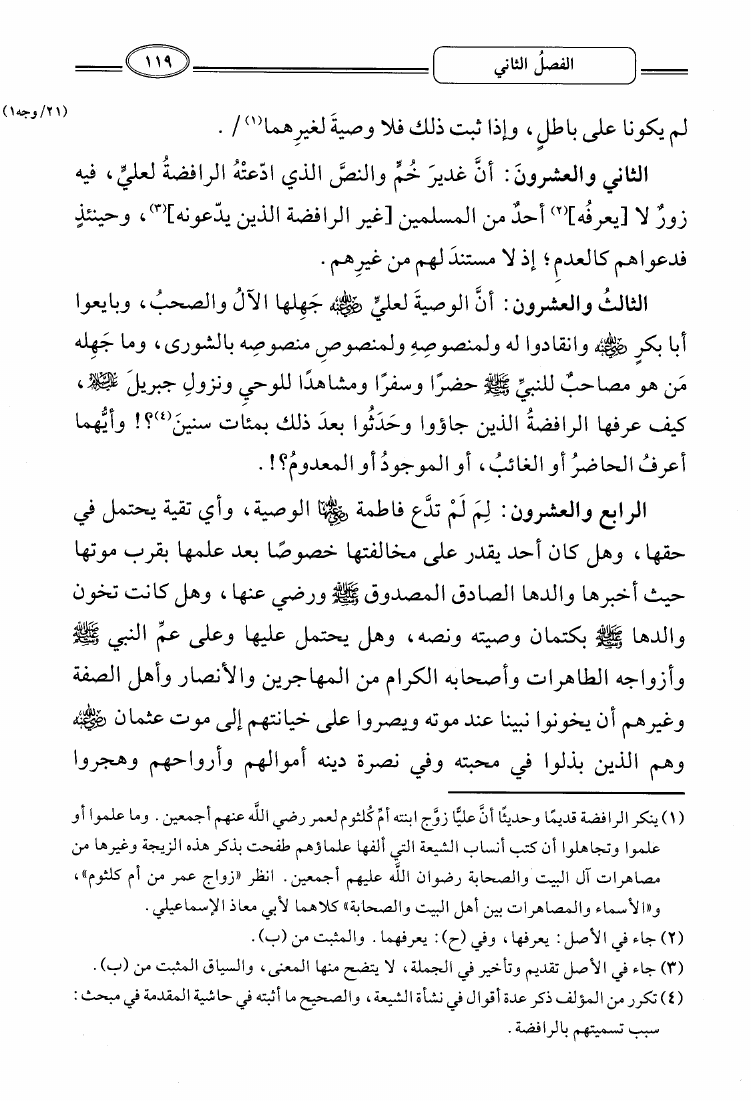 الفصلُ الثاني
١١٩
(٢١/ وجه١)
لم يكونا على باطلٍ، وإذا ثبت ذلك فلا وصيةَ لغيرِهما(١)/ .
الثاني والعشرونَ: أنَّ غديرَ خُمٍّ والنصَّ الذي ادّعتْهُ الرافضةُ لعليٍّ، فيه
زورٌ لا [يعرفُه](٢) أحدٌ من المسلمين [غير الرافضة الذين يدّعونه](٣)، وحينئذٍ
فدعواهم كالعدمِ؛ إذ لا مستندَ لهم من غيرِهم.
الثالثُ والعشرون: أنَّ الوصيةَ لعليٍّ رضي الله عنه جَهِلها الآلُ والصحبُ، وبايعوا
أبا بكرٍ رضي الله عنه وانقادوا له ولمنصوصِهِ ولمنصوصِ منصوصِه بالشورى، وما جَهِله
مَن هو مصاحبٌ للنبيِّ ﷺ حضرًا وسفرًا ومشاهدًا للوحي ونزولِ جبريلَ عليه السلام،
كيف عرفها الرافضةُ الذين جاؤوا وحَدَثُوا بعدَ ذلك بمئات سنينَ(٤)؟! وأيُّهما
أعرفُ الحاضرُ أو الغائبُ، أو الموجودُ أو المعدومُ؟!.
الرابع والعشرون: لِمَ لَمْ تدَّعِ فاطمة رضي الله عنها الوصية، وأي تقية يحتمل في
حقها، وهل كان أحد يقدر على مخالفتها خصوصًا بعد علمها بقرب موتها
حيث أخبرها والدها الصادق المصدوق ﷺ ورضي عنها، وهل كانت تخون
والدها ﷺ بكتمان وصيته ونصه، وهل يحتمل عليها وعلى عمِّ النبي ﷺ
وأزواجه الطاهرات وأصحابه الكرام من المهاجرين والأنصار وأهل الصفة
وغيرهم أن يخونوا نبينا عند موته ويصروا على خيانتهم إلى موت عثمان رضي الله عنه
وهم الذين بذلوا في محبته وفي نصرة دينه أموالهم وأرواحهم وهجروا
(١) ينكر الرافضة قديمًا وحديثًا أنَّ عليًّا زوَّج ابنته أمَّ كُلثوم لعمر رضي اللَّه عنهم أجمعين. وما علموا أو
علموا وتجاهلوا أن كتب أنساب الشيعة التي ألفها علماؤهم طفحت بذكر هذه الزيجة وغيرها من
مصاهرات آل البيت والصحابة رضوان اللَّه عليهم أجمعين. انظر «زواج عمر من أم كلثوم»،
و«الأسماء والمصاهرات بين أهل البيت والصحابة» كلاهما لأبي معاذ الإسماعيلي.
(٢) جاء في الأصل: يعرفها، وفي (ح): يعرفهما. والمثبت من (ب).
(٣) جاء في الأصل تقديم وتأخير في الجملة، لا يتضح منها المعنى، والسياق المثبت من (ب).
(٤) تكرر من المؤلف ذكر عدة أقوال في نشأة الشيعة، والصحيح ما أثبته في حاشية المقدمة في مبحث:
سبب تسميتهم بالرافضة.